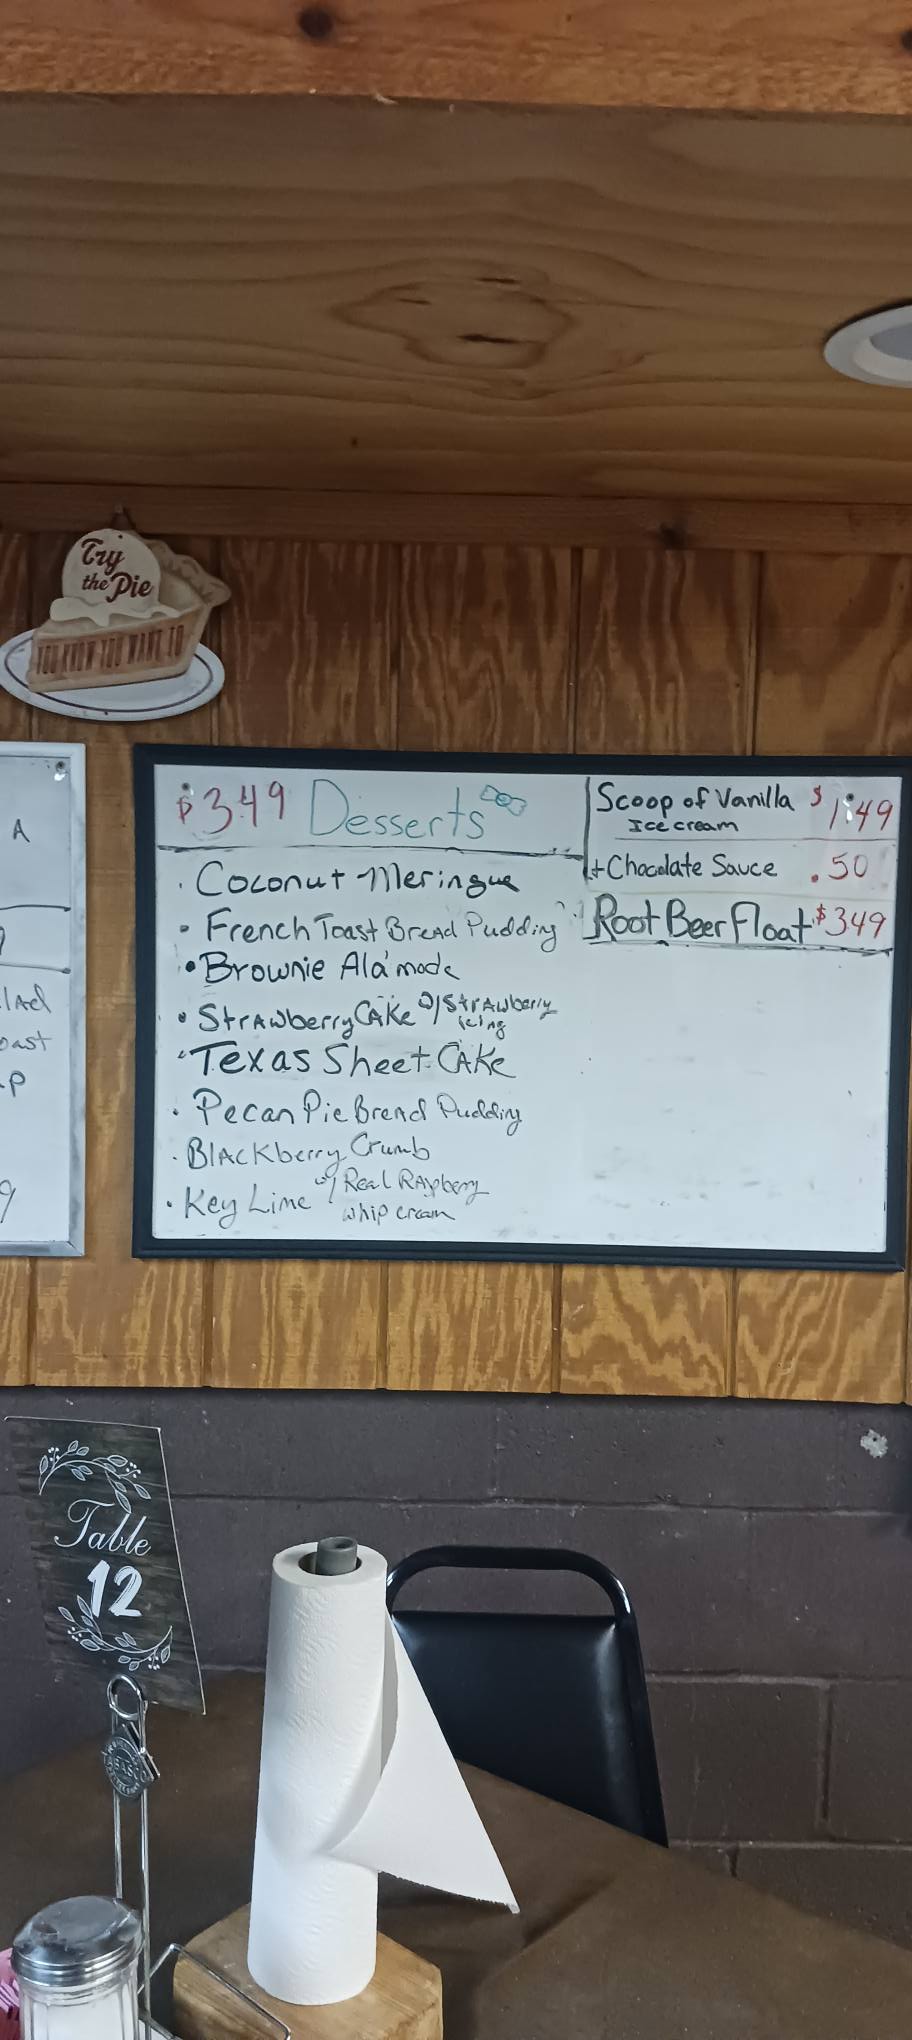 Try
the Pie
YOU KNOW YOU WANT TO
A
lad
oast
p
9
$349 Desserts
· Coconut Meringue
· French Toast Bread Pudding
· Brownie Ala'mode
· Strawberry Cake w/ Strawberry
Icing
· Texas Sheet Cake
· Pecan Pie Bread Pudding
· Blackberry Crumb
· Key Lime w/ Real Raspberry
whip cream
Scoop of Vanilla $1.49
Ice cream
+ Chocolate Sauce .50
Root Beer Float $349
Table
12